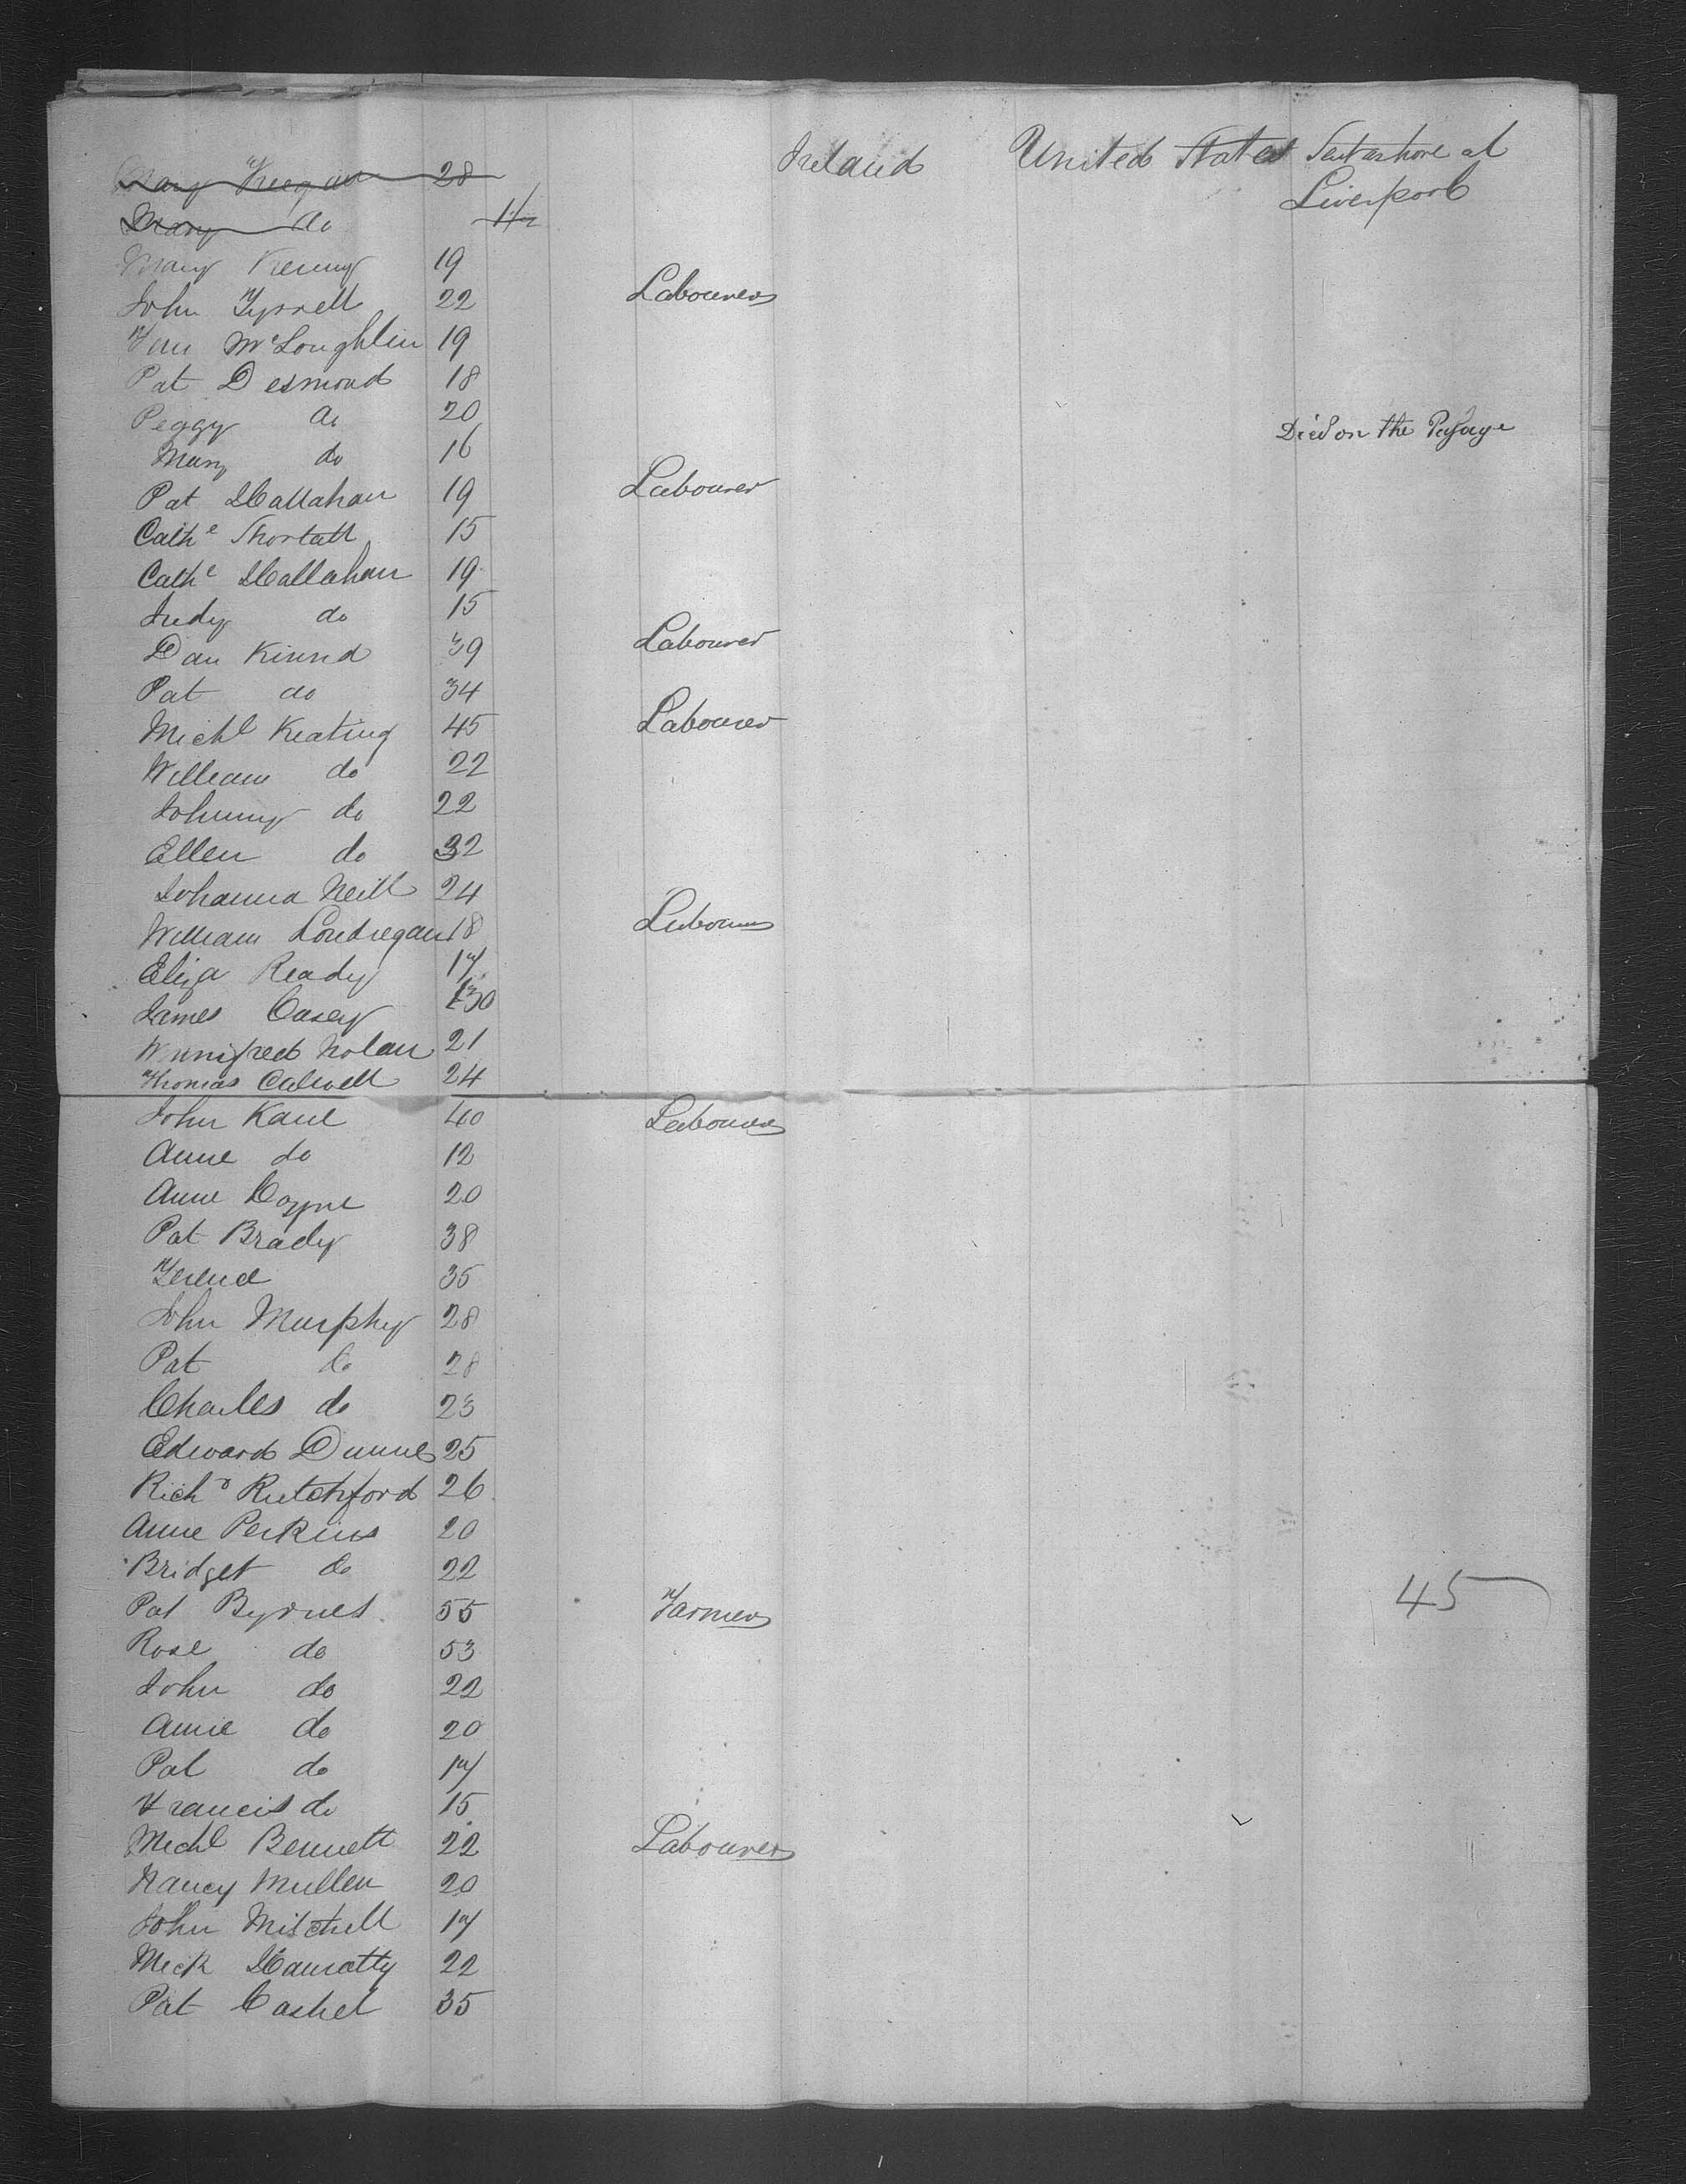 Mary Keegan 28 Ireland United States Sent ashore at
Liverpool
Mary do
Mary Kenny 19
John Tyrrell 22 Labourer
McLoughlin 19
Pat Desmond 18
Peggy do 20 Died on the Passage
Mary do 16
Pat Hallahan 19 Labourer
Cathe Shortall 15
Cathe Hallahan 19
Judy do 15
Dan 39 Labourer
Pat do 34
Michl Keating 45 Labourer
William do 22
Johnny do 22
Ellen do 32
Johanna Neill 24
William Londregan 18 Labourer
Eliza Ready 17
James Casey 30
Winnifred Nolan 21
Thomas Calwell 24
John Kane 40 Labourer
Anne do 12
Anne Coyne 20
Pat Brady 38
35
John Murphy 28
Pat do 28
Charles do 23
Edward Dunne 25
Richd Rutchford 26
Anne Perkins 20
Bridget do 22
Pat Byrnes 55 Farmer 45
Rose do 53
John do 22
Anne do 20
Pat do 17
Francis do 15
Michl Bennett 22 Labourer
Nancy Mullen 20
John Mitchell 17
Mick Hanratty 22
Pat Cashel 35